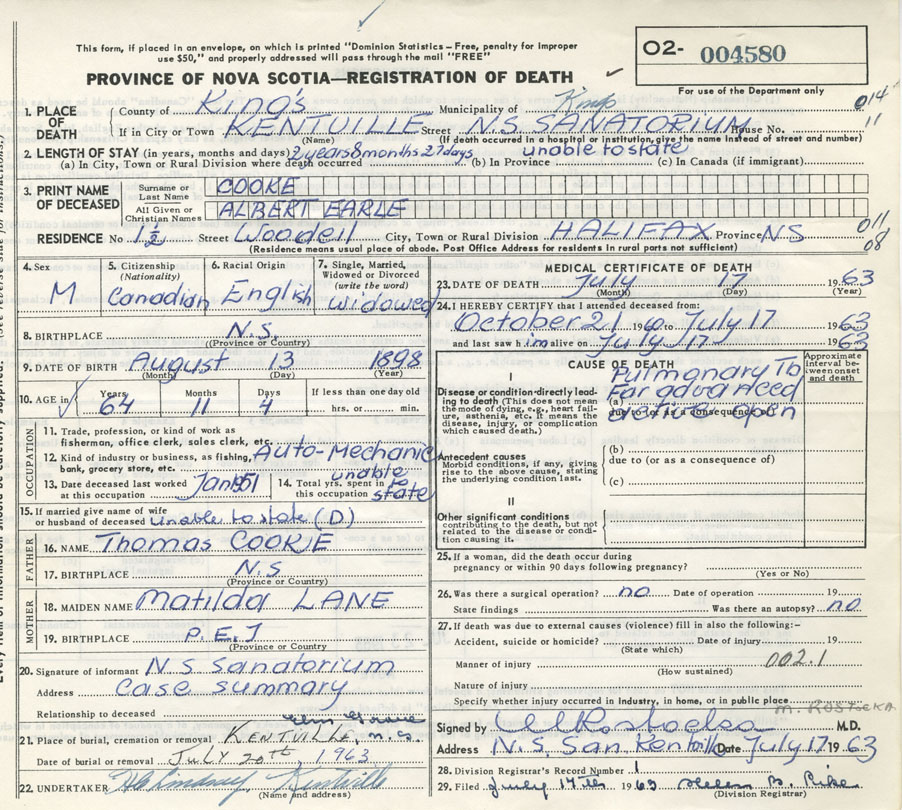 This form, if placed in an envelope, on which is printed "Dominion Statistics – Free, penalty for improper
use $50," and properly addressed will pass through the mail "FREE"
PROVINCE OF NOVA SCOTIA—REGISTRATION OF DEATH
O2- 004580
For use of the Department only
014
11
1. PLACE OF DEATH
County of King's Municipality of Kings
If in City or Town KENTVILLE Street N.S. SANATORIUM House No.
(Name) (If death occurred in a hospital or institution, give the name instead of street and number)
2. LENGTH OF STAY (in years, months and days) 2 years 8 months 27 days unable to state
(a) In City, Town or Rural Division where death occurred (b) In Province (c) In Canada (if immigrant)
3. PRINT NAME OF DECEASED
Surname or Last Name COOKE
All Given or Christian Names ALBERT EARLE
RESIDENCE No 1½ Street Woodell City, Town or Rural Division HALIFAX Province NS
011
08
(Residence means usual place of abode. Post Office Address for residents in rural parts not sufficient)
4. Sex M
5. Citizenship (Nationality) Canadian
6. Racial Origin English
7. Single, Married, Widowed or Divorced (write the word) widowed
8. BIRTHPLACE N.S.
(Province or Country)
9. DATE OF BIRTH August 13 1898
(Month) (Day) (Year)
10. AGE in Years Months Days If less than one day old
64 11 hrs. or min.
OCCUPATION
11. Trade, profession, or kind of work as
fisherman, office clerk, sales clerk, etc.
12. Kind of industry or business, as fishing, Auto-Mechanic
bank, grocery store, etc.
13. Date deceased last worked at this occupation Jan 1951
14. Total yrs. spent in this occupation unable to state
15. If married give name of wife
or husband of deceased unable to state (D)
FATHER
16. NAME Thomas COOKE
17. BIRTHPLACE N.S
(Province or Country)
MOTHER
18. MAIDEN NAME Matilda LANE
19. BIRTHPLACE P.E.I
(Province or Country)
20. Signature of informant N S Sanatorium
Address Case summary
Relationship to deceased
Elm Grove
21. Place of burial, cremation or removal KENTVILLE, N.S.
Date of burial or removal JULY 20th 1963
22. UNDERTAKER Lindsay Kentville
(Name and address)
MEDICAL CERTIFICATE OF DEATH
23. DATE OF DEATH July 17 1963
(Month) (Day) (Year)
24. I HEREBY CERTIFY that I attended deceased from:
October 21 1960 to July 17 1963
and last saw him alive on July 17 1963
CAUSE OF DEATH
Approximate interval between onset and death
I
Disease or condition directly leading to death (This does not mean the mode of dying, e.g., heart failure, asthenia, etc. It means the disease, injury, or complication which caused death.)
Pulmonary Tb
Far advanced
(a) active open
due to (or as a consequence of)
Antecedent causes
Morbid conditions, if any, giving rise to the above cause, stating the underlying condition last.
(b)
due to (or as a consequence of)
(c)
II
Other significant conditions
contributing to the death, but not related to the disease or condition causing it.
25. If a woman, did the death occur during
pregnancy or within 90 days following pregnancy?
(Yes or No)
26. Was there a surgical operation? no Date of operation 19
State findings Was there an autopsy? no
27. If death was due to external causes (violence) fill in also the following:–
Accident, suicide or homicide? Date of injury 19
(State which)
Manner of injury 002.1
(How sustained)
Nature of injury
Specify whether injury occurred in industry, in home, or in public place
M. ROSTOCKA
Signed by Rostocka M.D.
Address N.S. San Kentville Date July 17 1963
28. Division Registrar's Record Number 1
29. Filed July 17th 1963 Helen B. Pike
(Division Registrar)